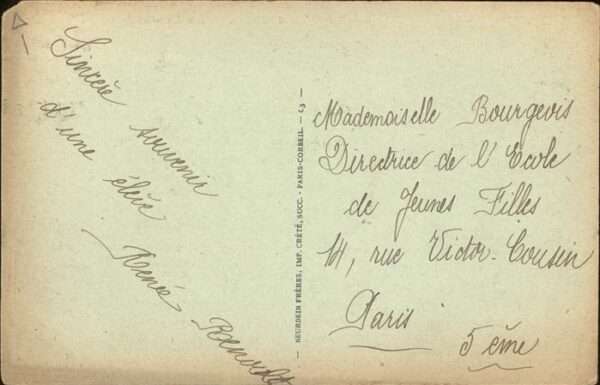 Sincère souvenir
d'une élève
Renée Renault
NEURDEIN FRÈRES, IMP. CRÉTÉ, SUCC. - PARIS-CORBEIL. - 23 -
Mademoiselle Bourgeois
Directrice de l'Ecole
de Jeunes Filles
14, rue Victor-Cousin
Paris
5 ème